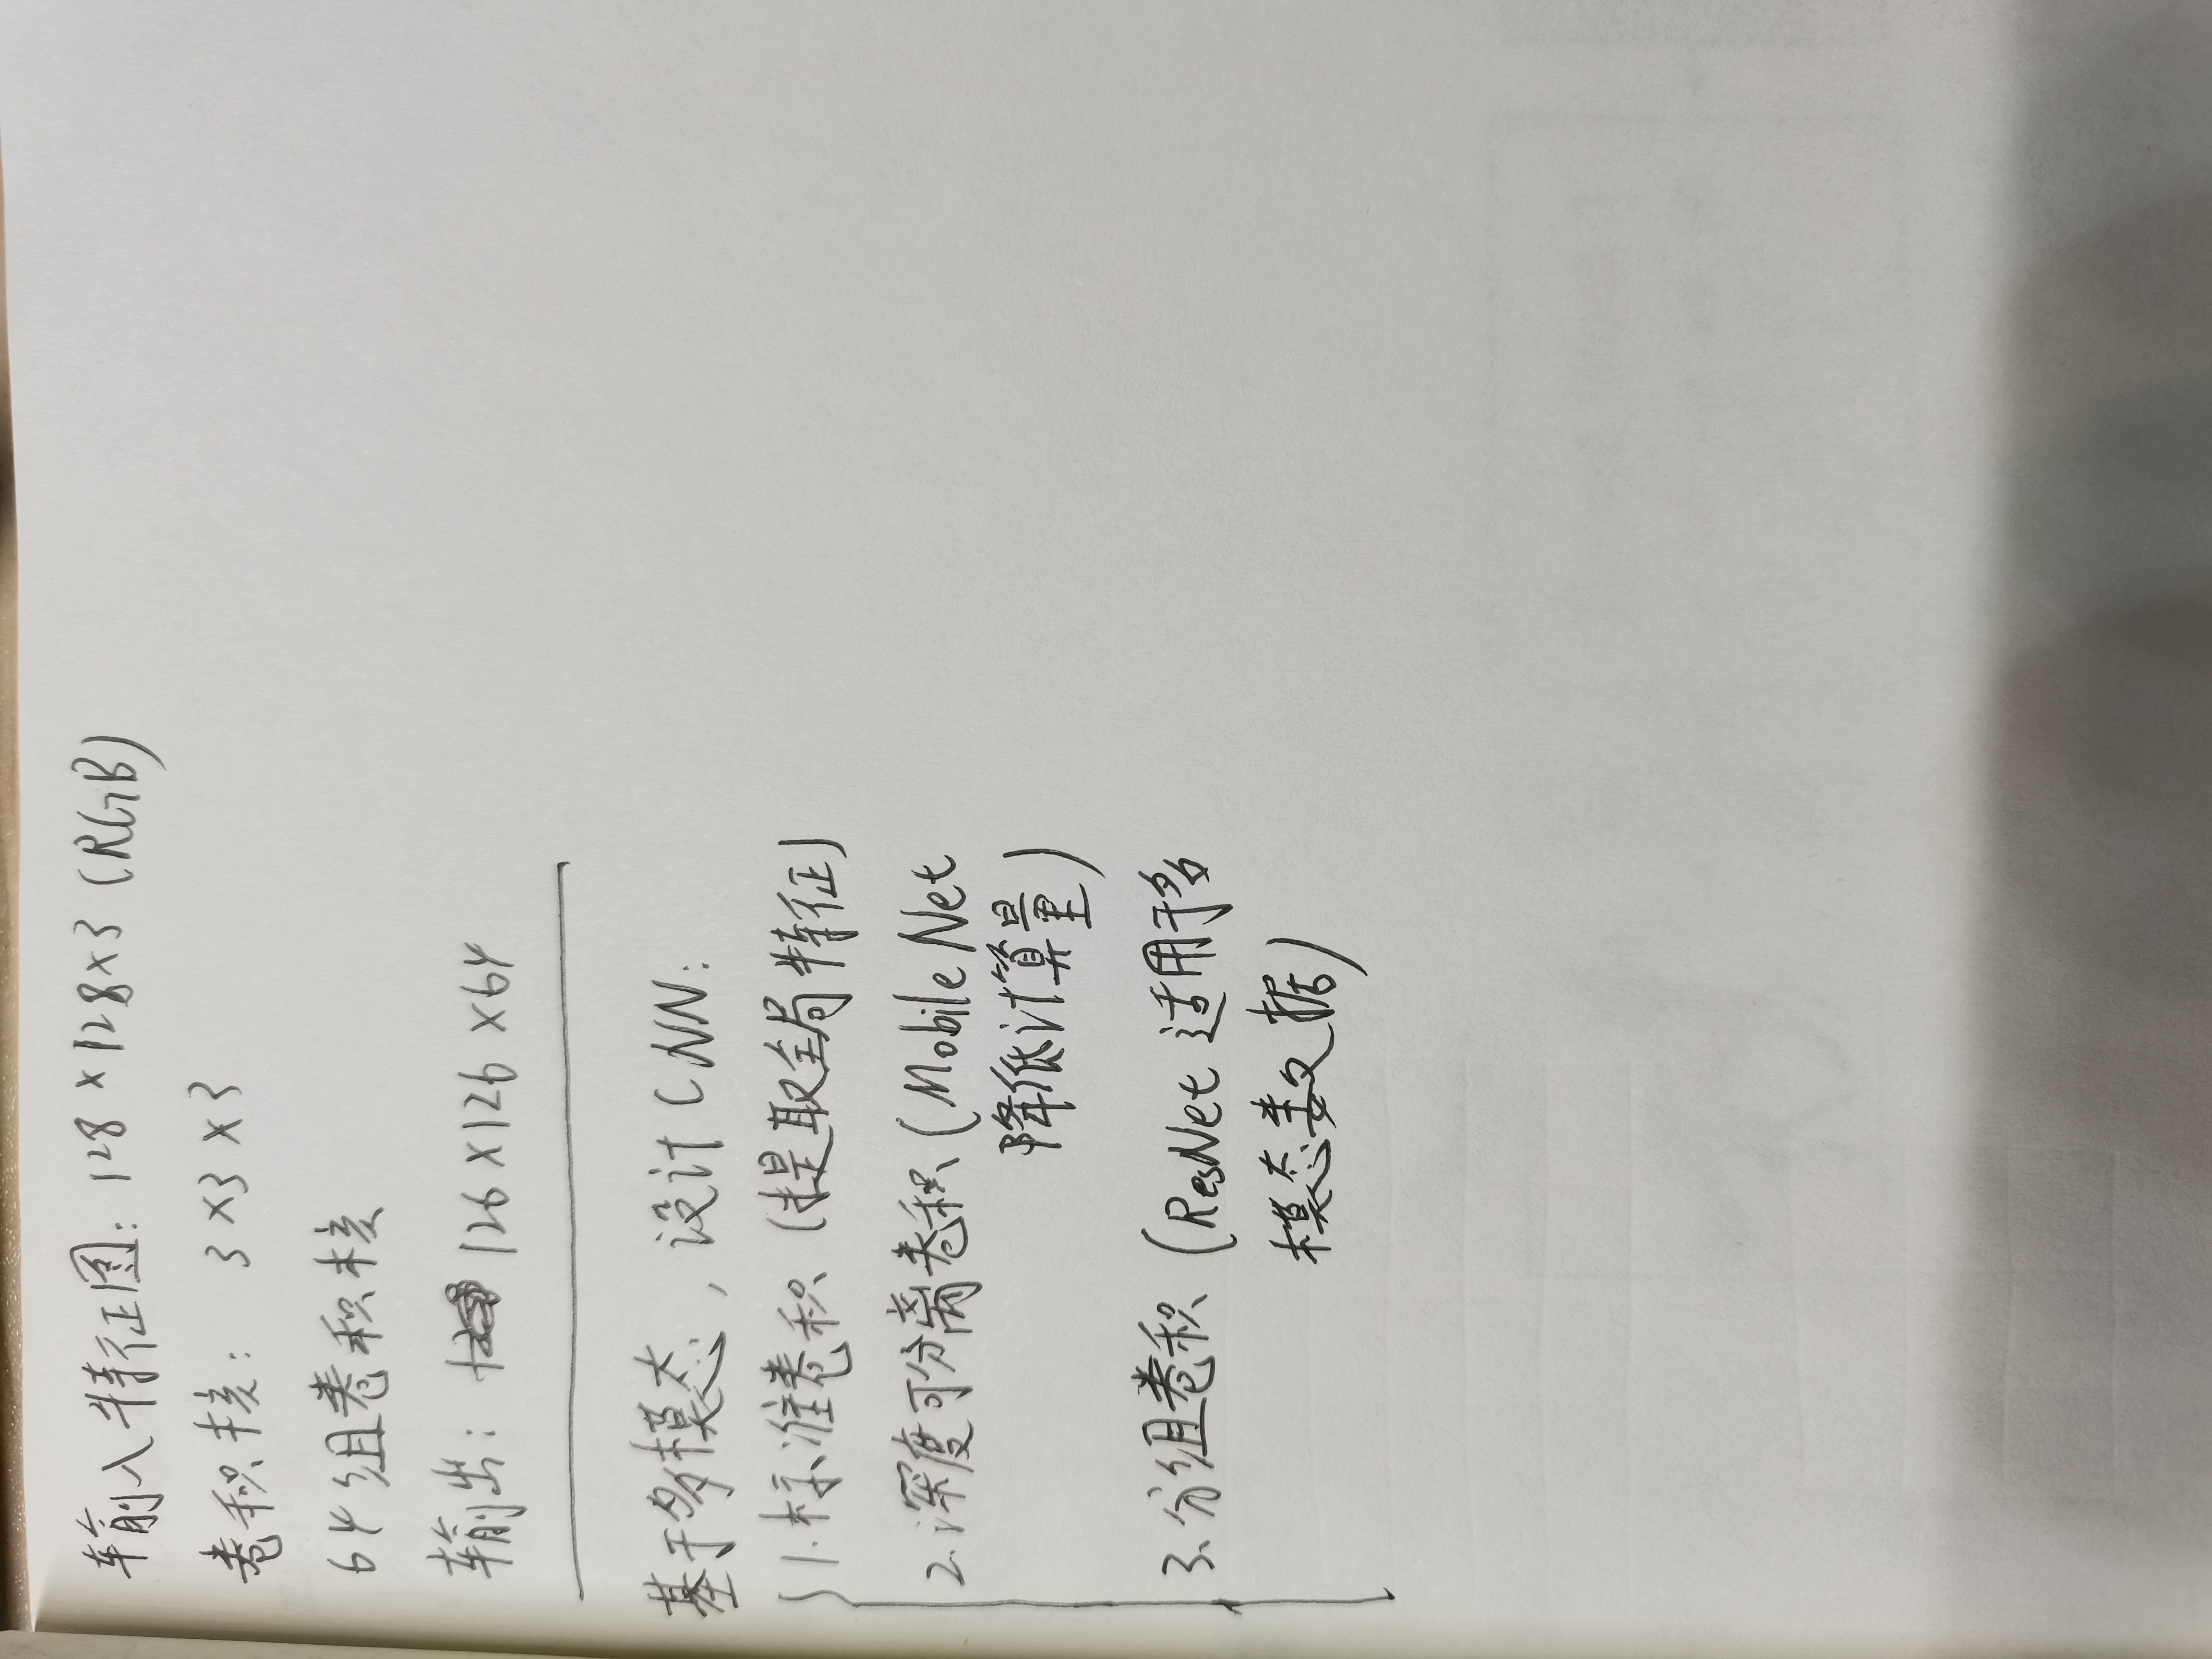 输入特征图: 128×128×3 (RGB)
卷积核: 3×3×3
64组卷积核
输出: 126×126×64
基于多模态, 设计CNN:
1.标准卷积 (提取全局特征)
2.深度可分离卷积 (MobileNet
降低计算量)
3.分组卷积 (ResNet 适用于多
模态数据)